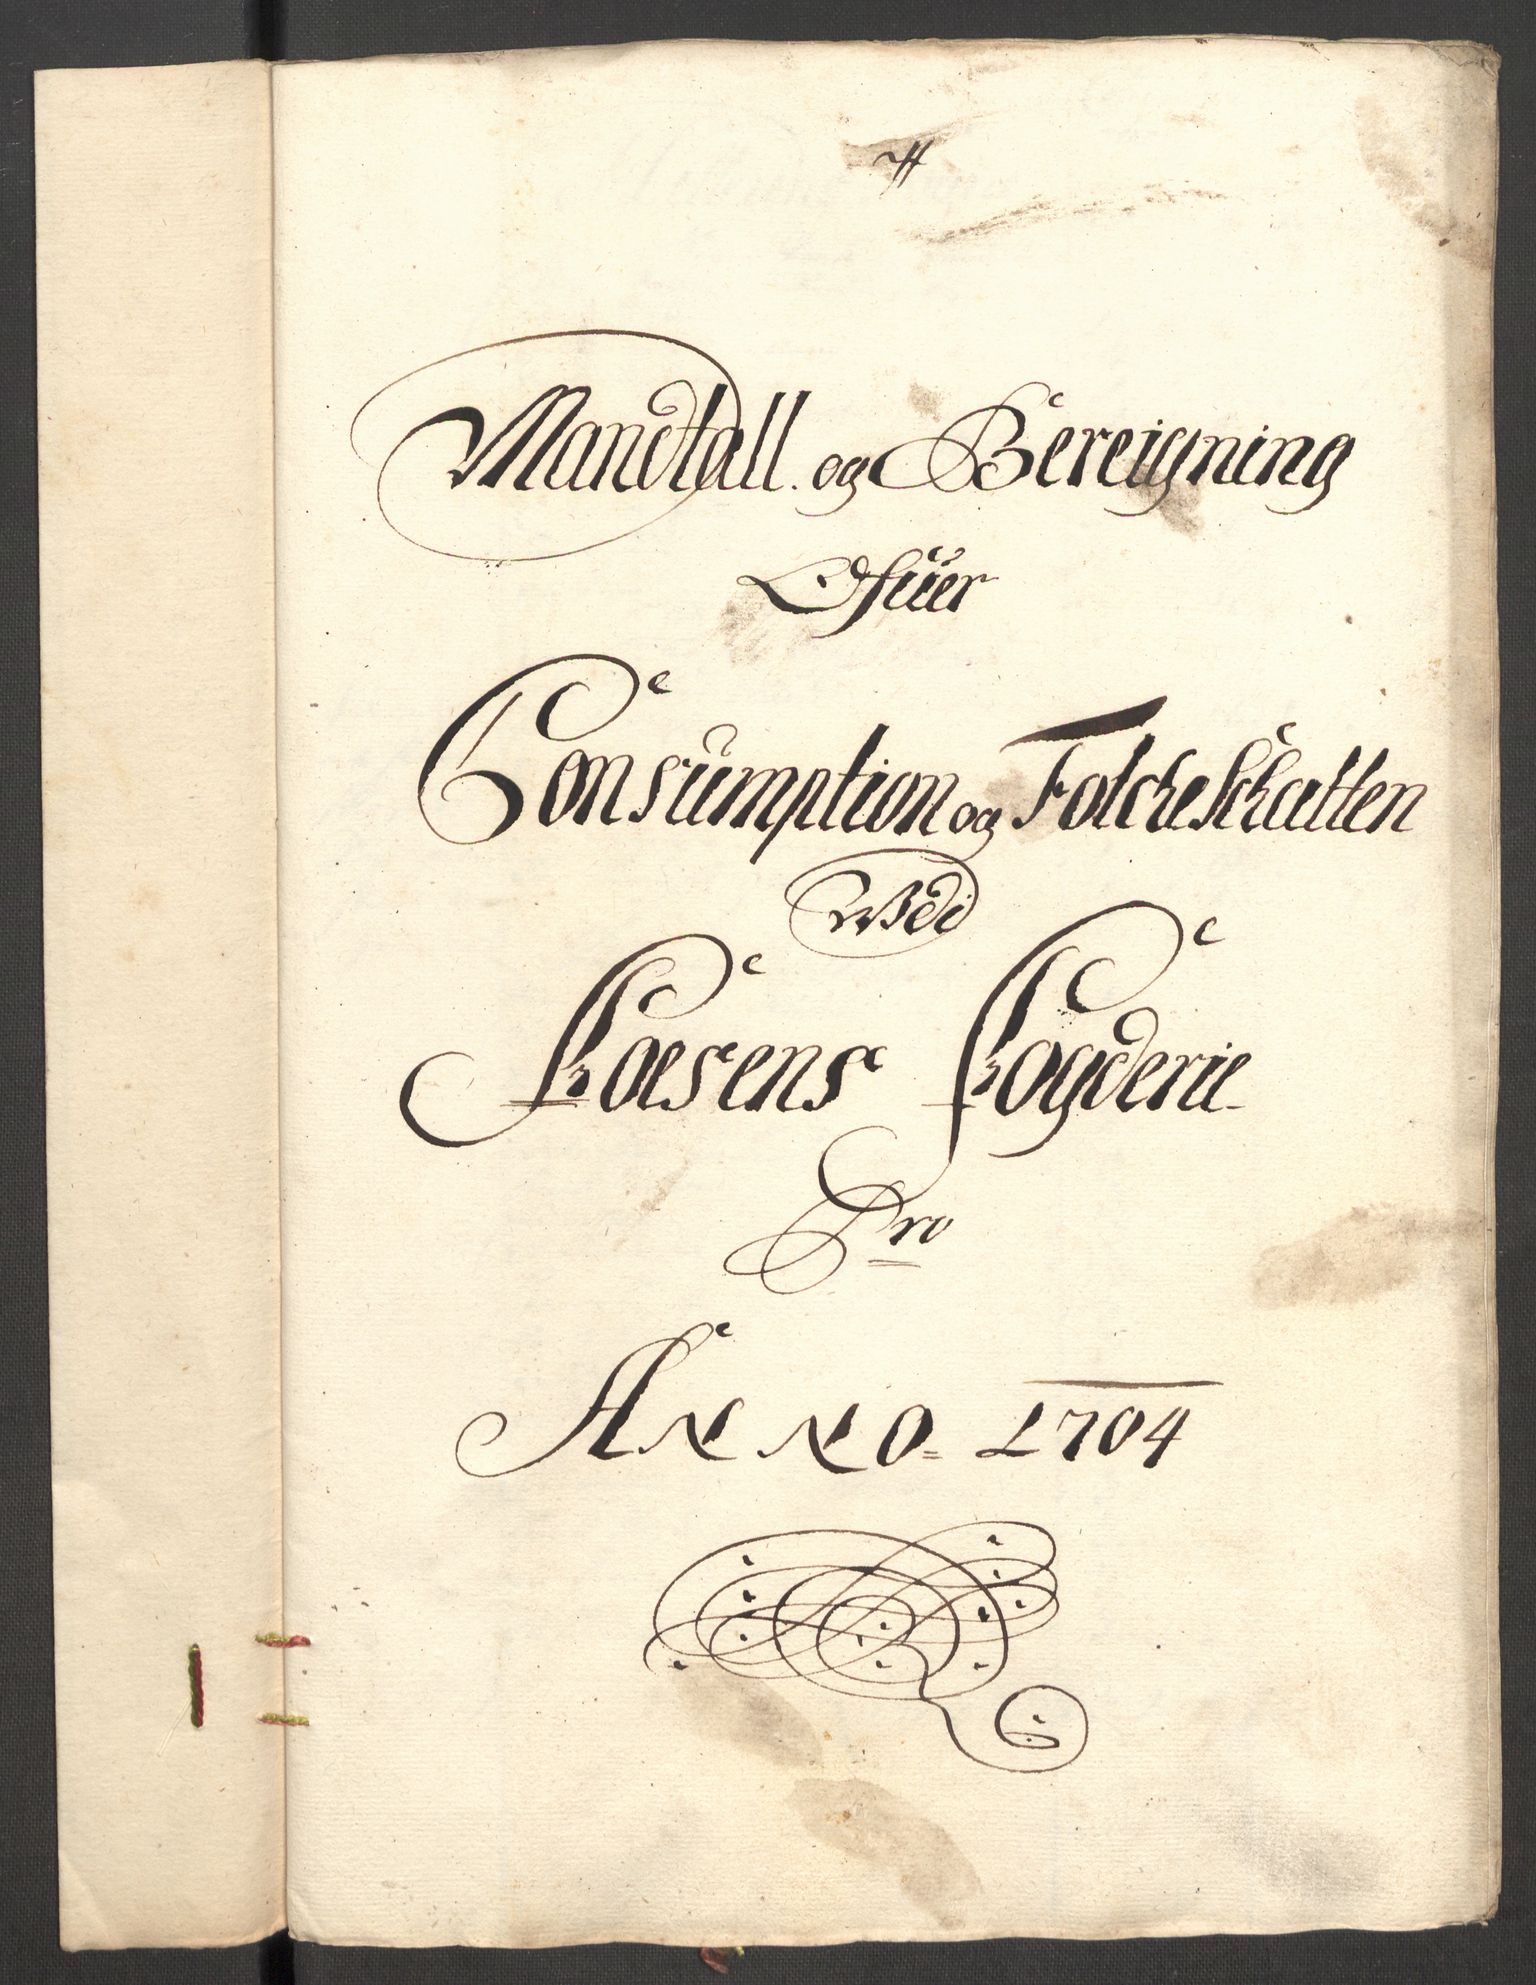 Mandtall og Bereigning
Ofuer
Consumption og FolckeSkatten
Udi
Foesens Fogderie
Pro
ANNO 1704